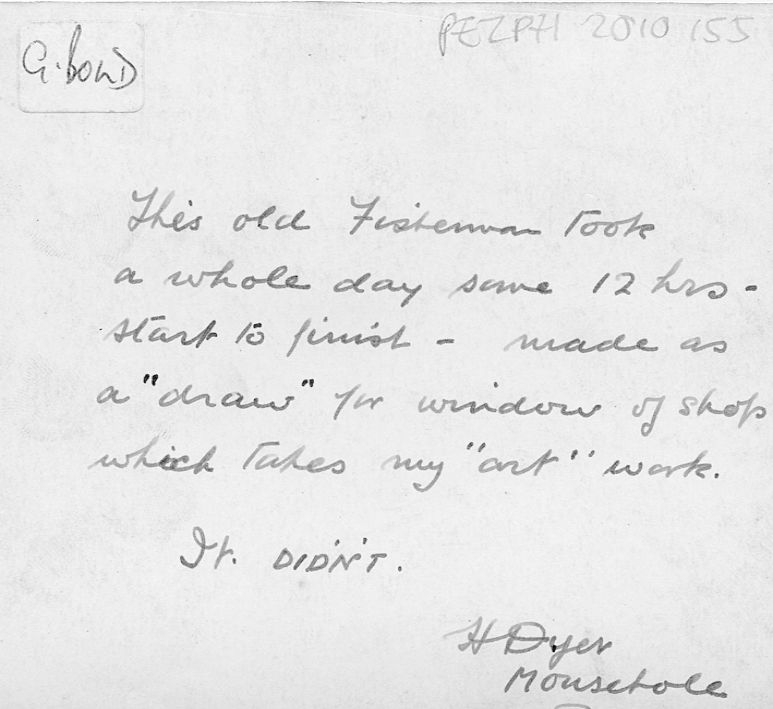 G. Bond
PEZPH 2010 155
This old Fisherman took
a whole day some 12 hrs -
start to finish - made as
a "draw" for window of shop
which takes my "art" work.
It. DIDN'T.
H Dyer
Mousehole